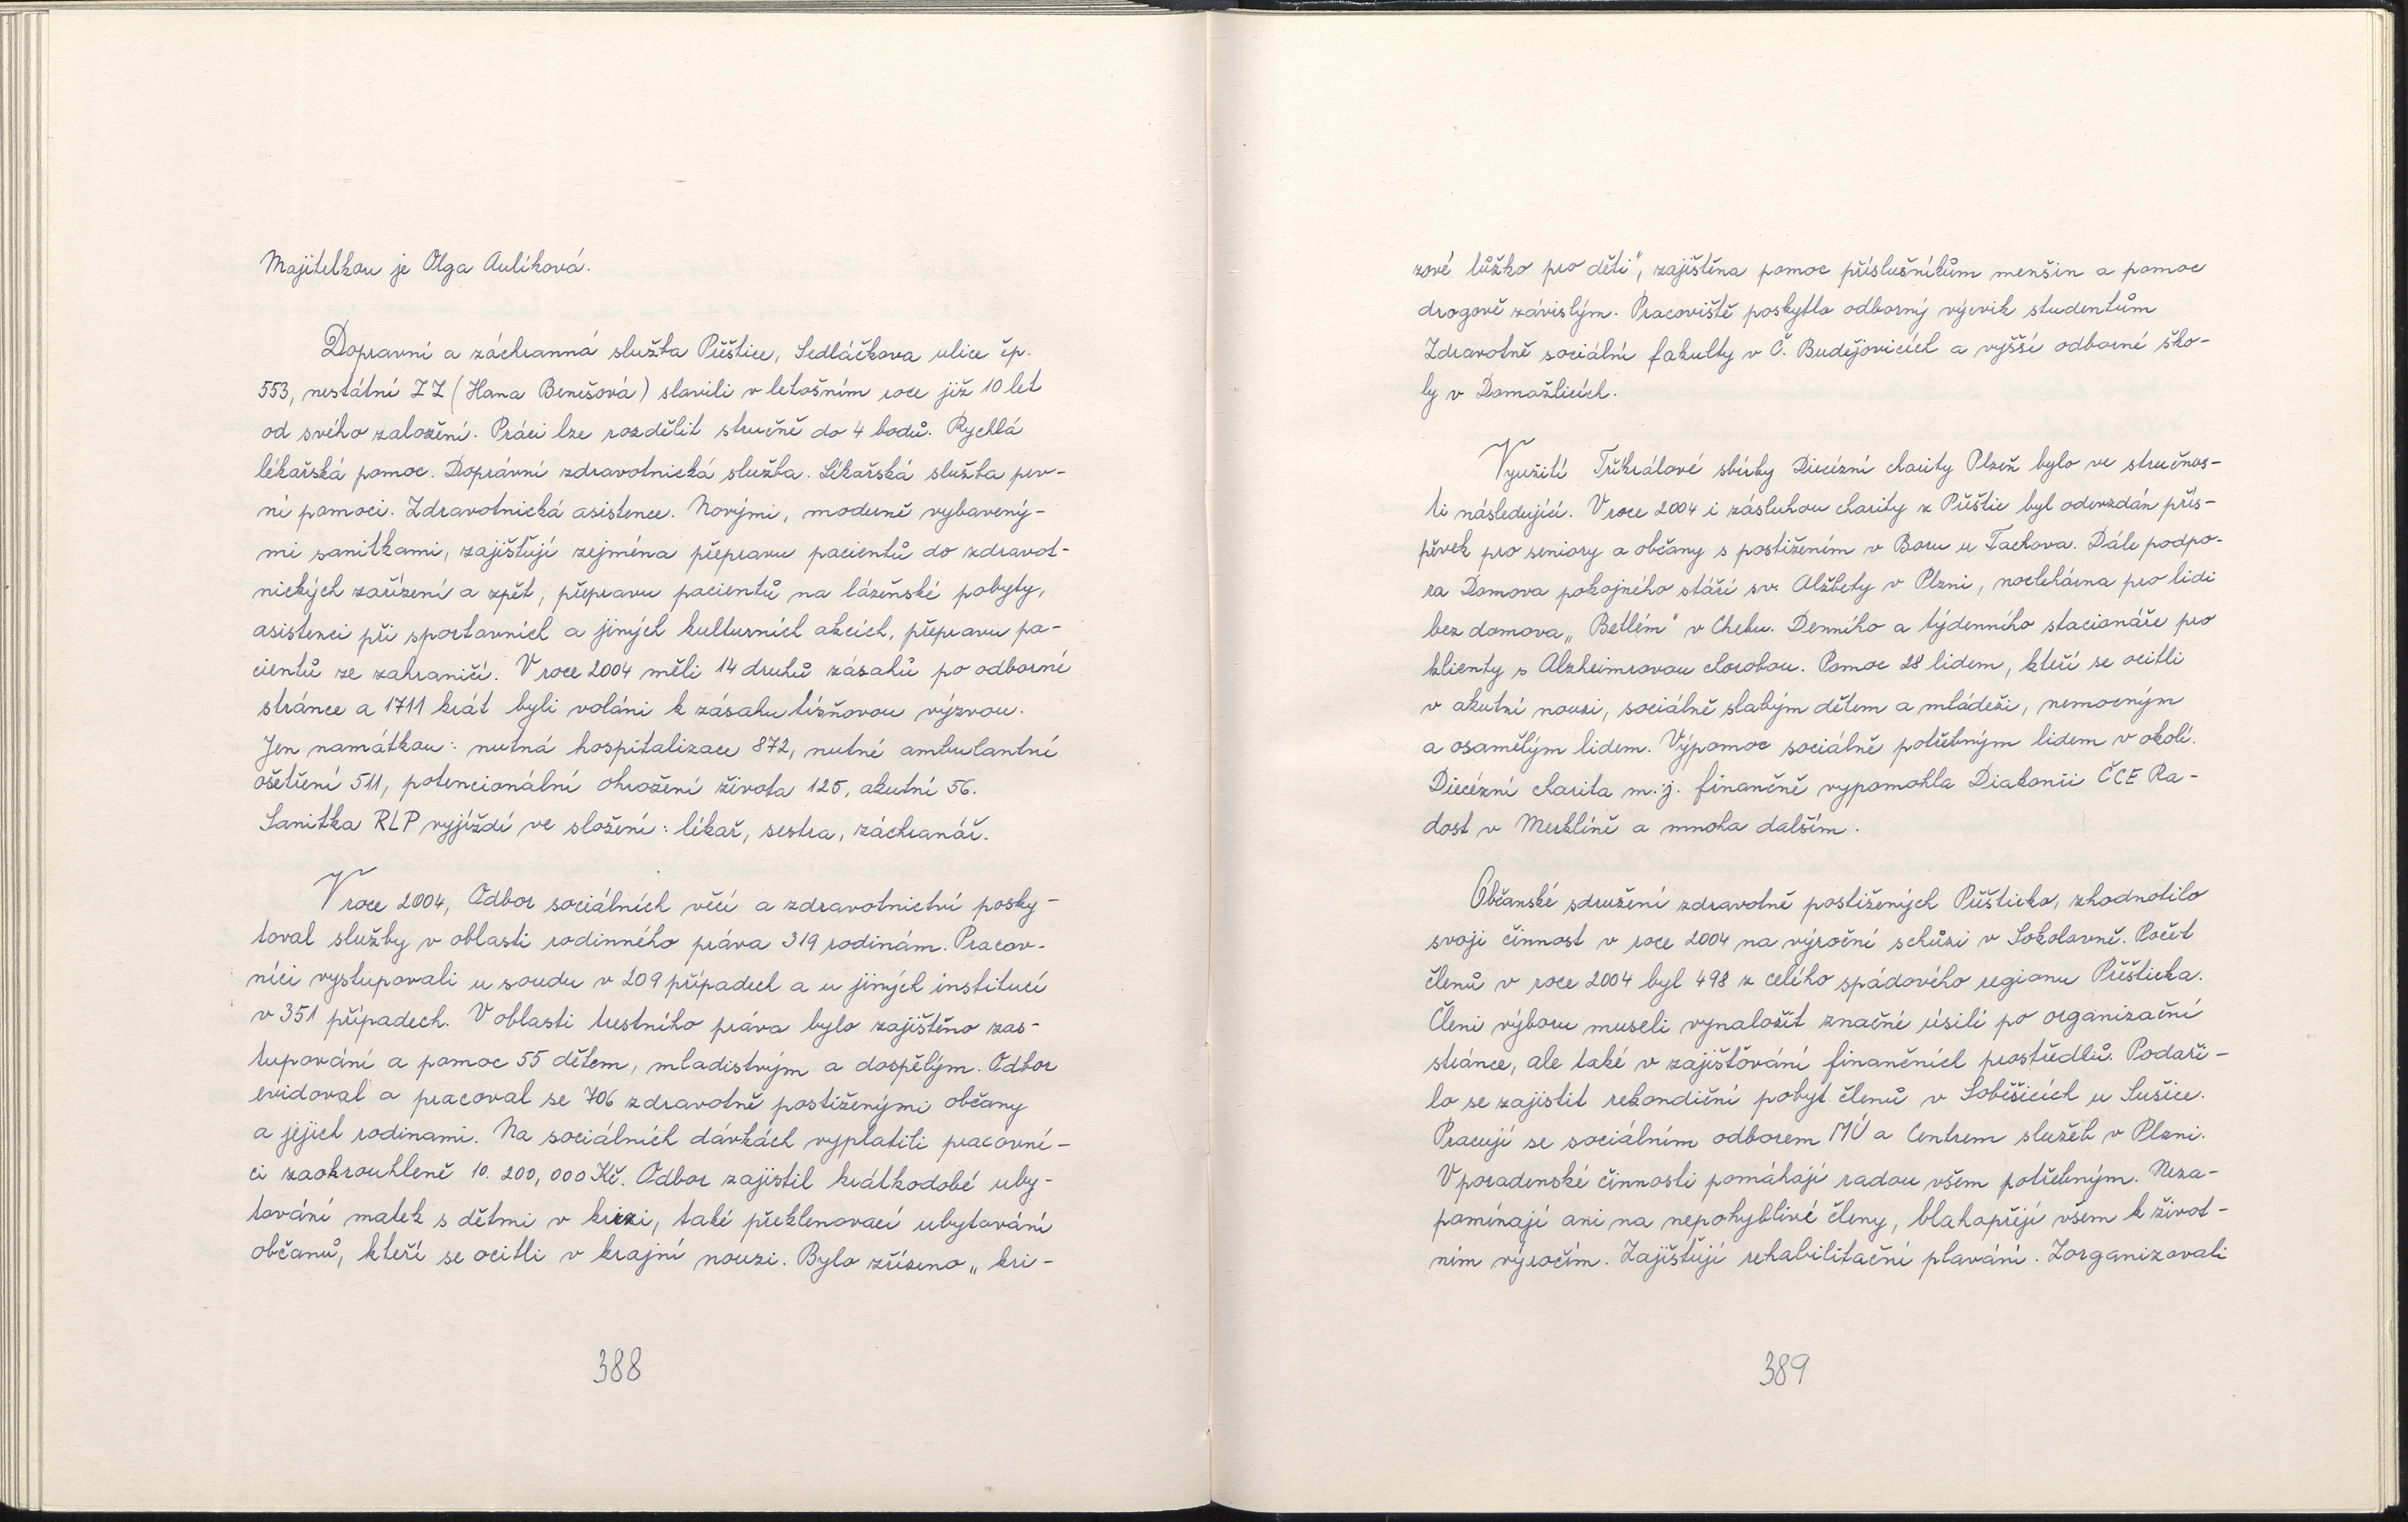 Majitelkou je Olga Aulíková.
Dopravní a záchranná služba Přeštice, Sedláčkova ulice čp.
553, nestátní ZZ (Hana Benešová) slavili v letošním roce již 10 let
od svého založení. Práci lze rozdělit stručně do 4 bodů. Rychlá
lékařská pomoc. Doprávní zdravotnická služba. Lékařská služba prv-
ní pomoci. Zdravotnická asistence. Novými, moderně vybavený-
mi sanitkami, zajišťují zejména přepravu pacientů do zdravot-
nických zařízení a zpět, přepravu pacientů na lázeňské pobyty,
asistenci při sportavních a jiných kulturních akcích, přepravu pa-
cientů ze zahraničí. V roce 2004 měli 14 druhů zásahů po odborné
stránce a 1711 krát byli voláni k zásahu tísňovou výzvou.
Jen namátkou: nutná hospitalizace 872, nutné ambulantní
ošetření 511, potencionální ohrožení života 125, akutní 56.
Sanitka RLP vyjíždí ve složení: lékař, sestra, záchranář.
V roce 2004, Odbor sociálních věcí a zdravotnictví posky-
toval služby v oblasti rodinného práva 319 rodinám. Pracov-
níci vystupovali u soudu v 209 případech a u jiných institucí
v 351 případech. V oblasti trestního práva bylo zajištěno zas-
tupování a pomoc 55 dětem, mladistvým a dospělým. Odbor
evidoval a pracoval se 706 zdravotně postiženými občany
a jejich rodinami. Na sociálních dávkách vyplatili pracovní-
ci zaokrouhleně 10. 200, 000 Kč. Odbor zajistil krátkodobé uby-
tování matek s dětmi v krizi, také překlenovací ubytování
občanů, kteří se ocitli v krajní nouzi. Bylo zřízeno „kri-
388
zové lůžko pro děti", zajištěna pomoc příslušníkům menšin a pomoc
drogově závislým. Pracoviště poskytlo odborný výcvik studentům
Zdravotně sociální fakulty v Č. Budějovicích a vyšší odborné ško-
ly v Domažlicích.
Využití Tříkrálové sbírky Diecézní charity Plzeň bylo ve stručnos-
ti následující. V roce 2004 i zásluhou charity z Přeštic byl odevzdán přís-
pěvek pro seniory a občany s postižením v Boru u Tachova. Dále podpo-
ra Domova pokojného stáří sv. Alžbety v Plzni, noclehárna pro lidi
bez domova „Betlém" v Chebu. Denního a týdenního stacionáře pro
klienty s Alzheimrovou chorobou. Pomoc 28 lidem, kteří se ocitli
v akutní nouzi, sociálně slabým dětem a mládeži, nemocným
a osamělým lidem. Výpomoc sociálně potřebným lidem v okolí.
Diecézní charita m.j. finančně vypomohla Diakonii ČCE Ra-
dost v Merklíně a mnoha dalším.
Občanské sdružení zdravotně postižených Přešticko, zhodnotilo
svoji činnost v roce 2004 na výroční schůzi v Sokolovně. Počet
členů v roce 2004 byl 498 z celého spádového regionu Přešticka.
Členi výboru museli vynaložit značné úsilí po organizační
stránce, ale také v zajišťování finančních prostředků. Podaři-
lo se zajistit rekondiční pobyt členů v Soběšicích u Sušice.
Pracují se sociálním odborem MÚ a Centrem služeb v Plzni.
V poradenské činnosti pomáhají radou všem potřebným. Neza-
pomínají ani na nepohyblivé členy, blahopřejí všem k život-
ním výročím. Zajišťují rehabilitační plavání. Zorganizovali
389